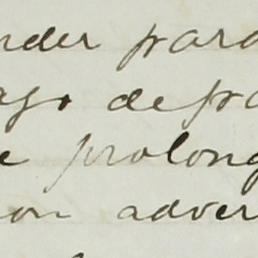 nder para
ay. depa
e prolong
on adver